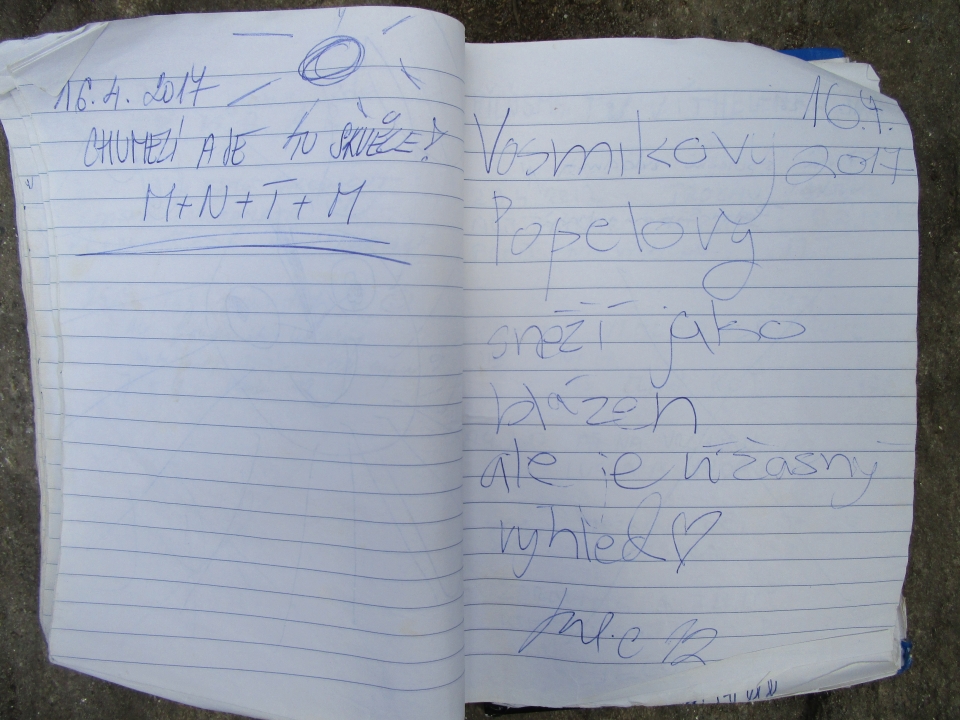 16.4. 2017
CHUMELÍ A JE TU SKVĚLE!
M+N+T+M
16.4.
Vosmikovy 2017
Popelovy
sněží jako
blázen
ale je úžasný
vyhled